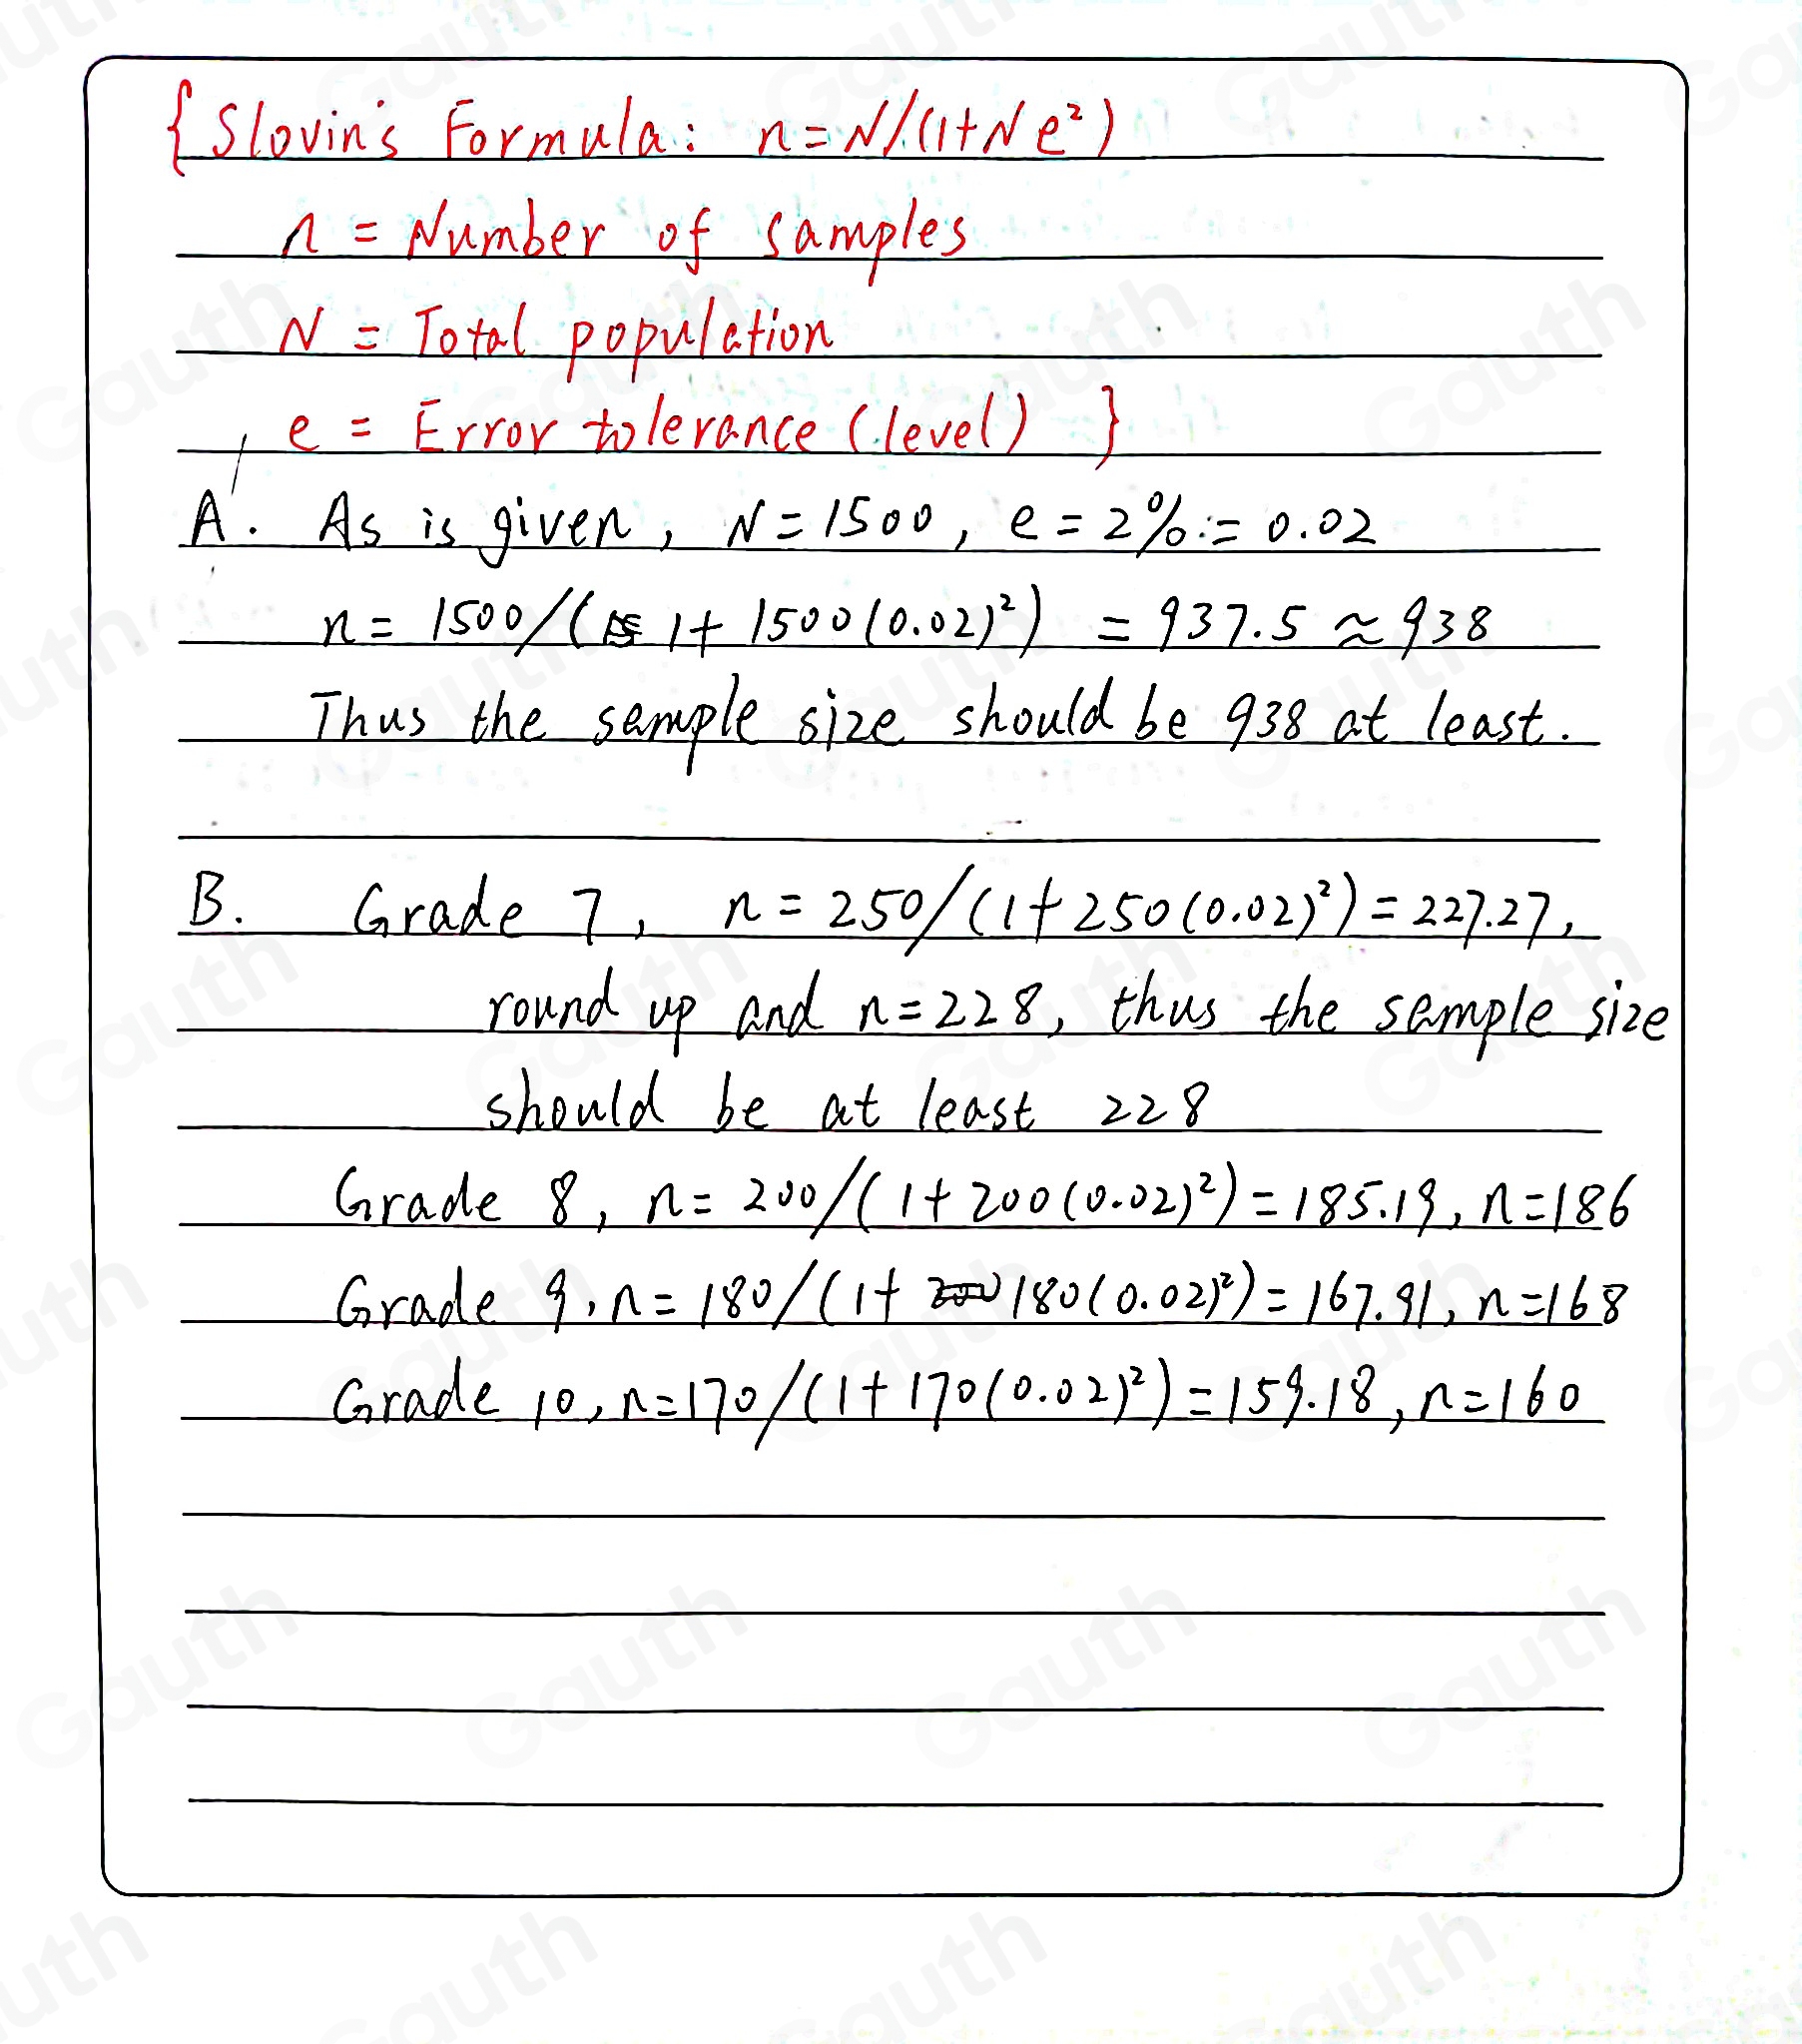 {Slovin's Formula: n=N/(1+Ne²)
n = Number of samples
N = Total population
e = Error tolerance (level) }
A. As is given, N=1500, e=2%=0.02
n= 1500/( 1+ 1500(0.02)²) =937.5≈938
Thus the sample size should be 938 at least.
B. Grade 7, n=250/(1+250(0.02)²)=227.27,
round up and n=228, thus the sample size
should be at least 228
Grade 8, n=200/(1+200(0.02)²)=185.19, n=186
Grade 9, n=180/(1+ 180(0.02)²)=167.91, n=168
Grade 10, n=170/(1+170(0.02)²)=159.18, n=160